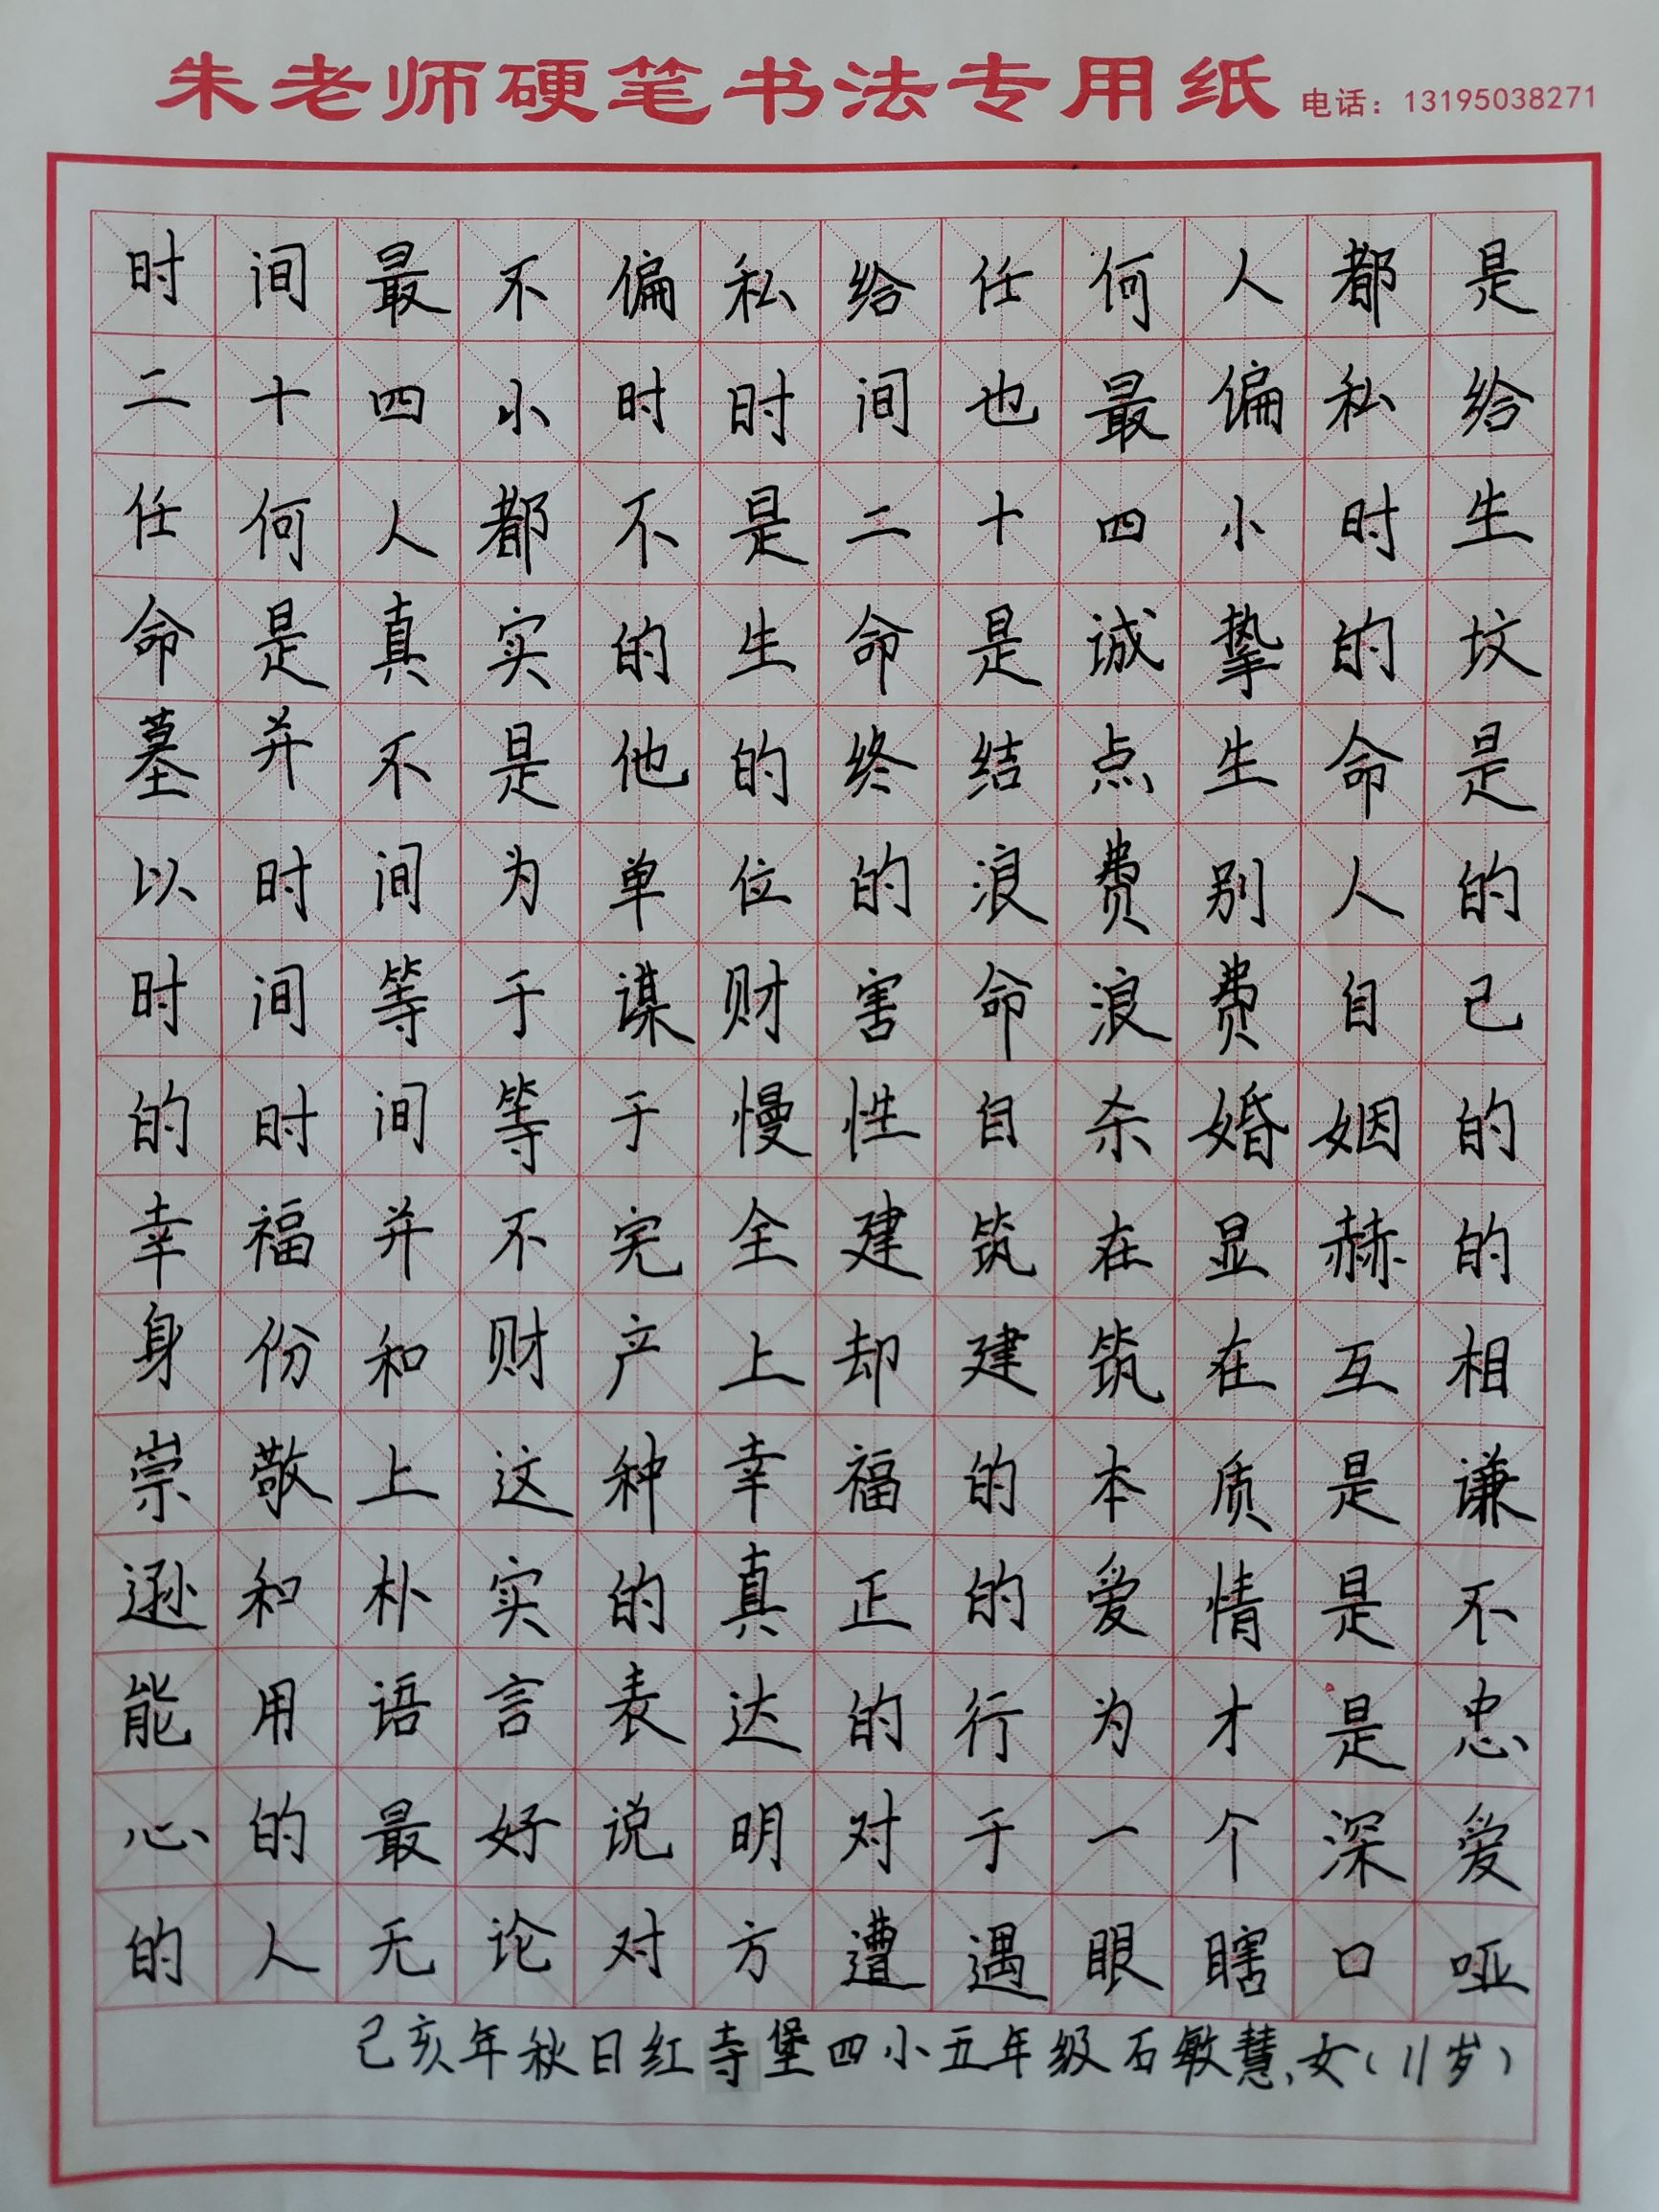 朱老师硬笔书法专用纸 电话：13195038271
时间最不偏私给任何人都是
二十四小时时间也最偏私给
任何人都不是二十四小时生
命是真实的生命是诚挚的坟
墓并不是他的终结点生命是
以时间为单位的浪费别人的
时间等于谋财害命浪费自己
的时间等于慢性自杀婚姻的
幸福并不完全建筑在显赫的
身份和财产上却建筑在互相
崇敬上这种幸福的本质是谦
逊和朴实的真正的爱情是不
能用语言表达的行为才是忠
心的最好说明对于一个深爱
的人无论对方遭遇眼瞎口哑
己亥年秋日红寺堡四小五年级石敏慧、女（11岁）